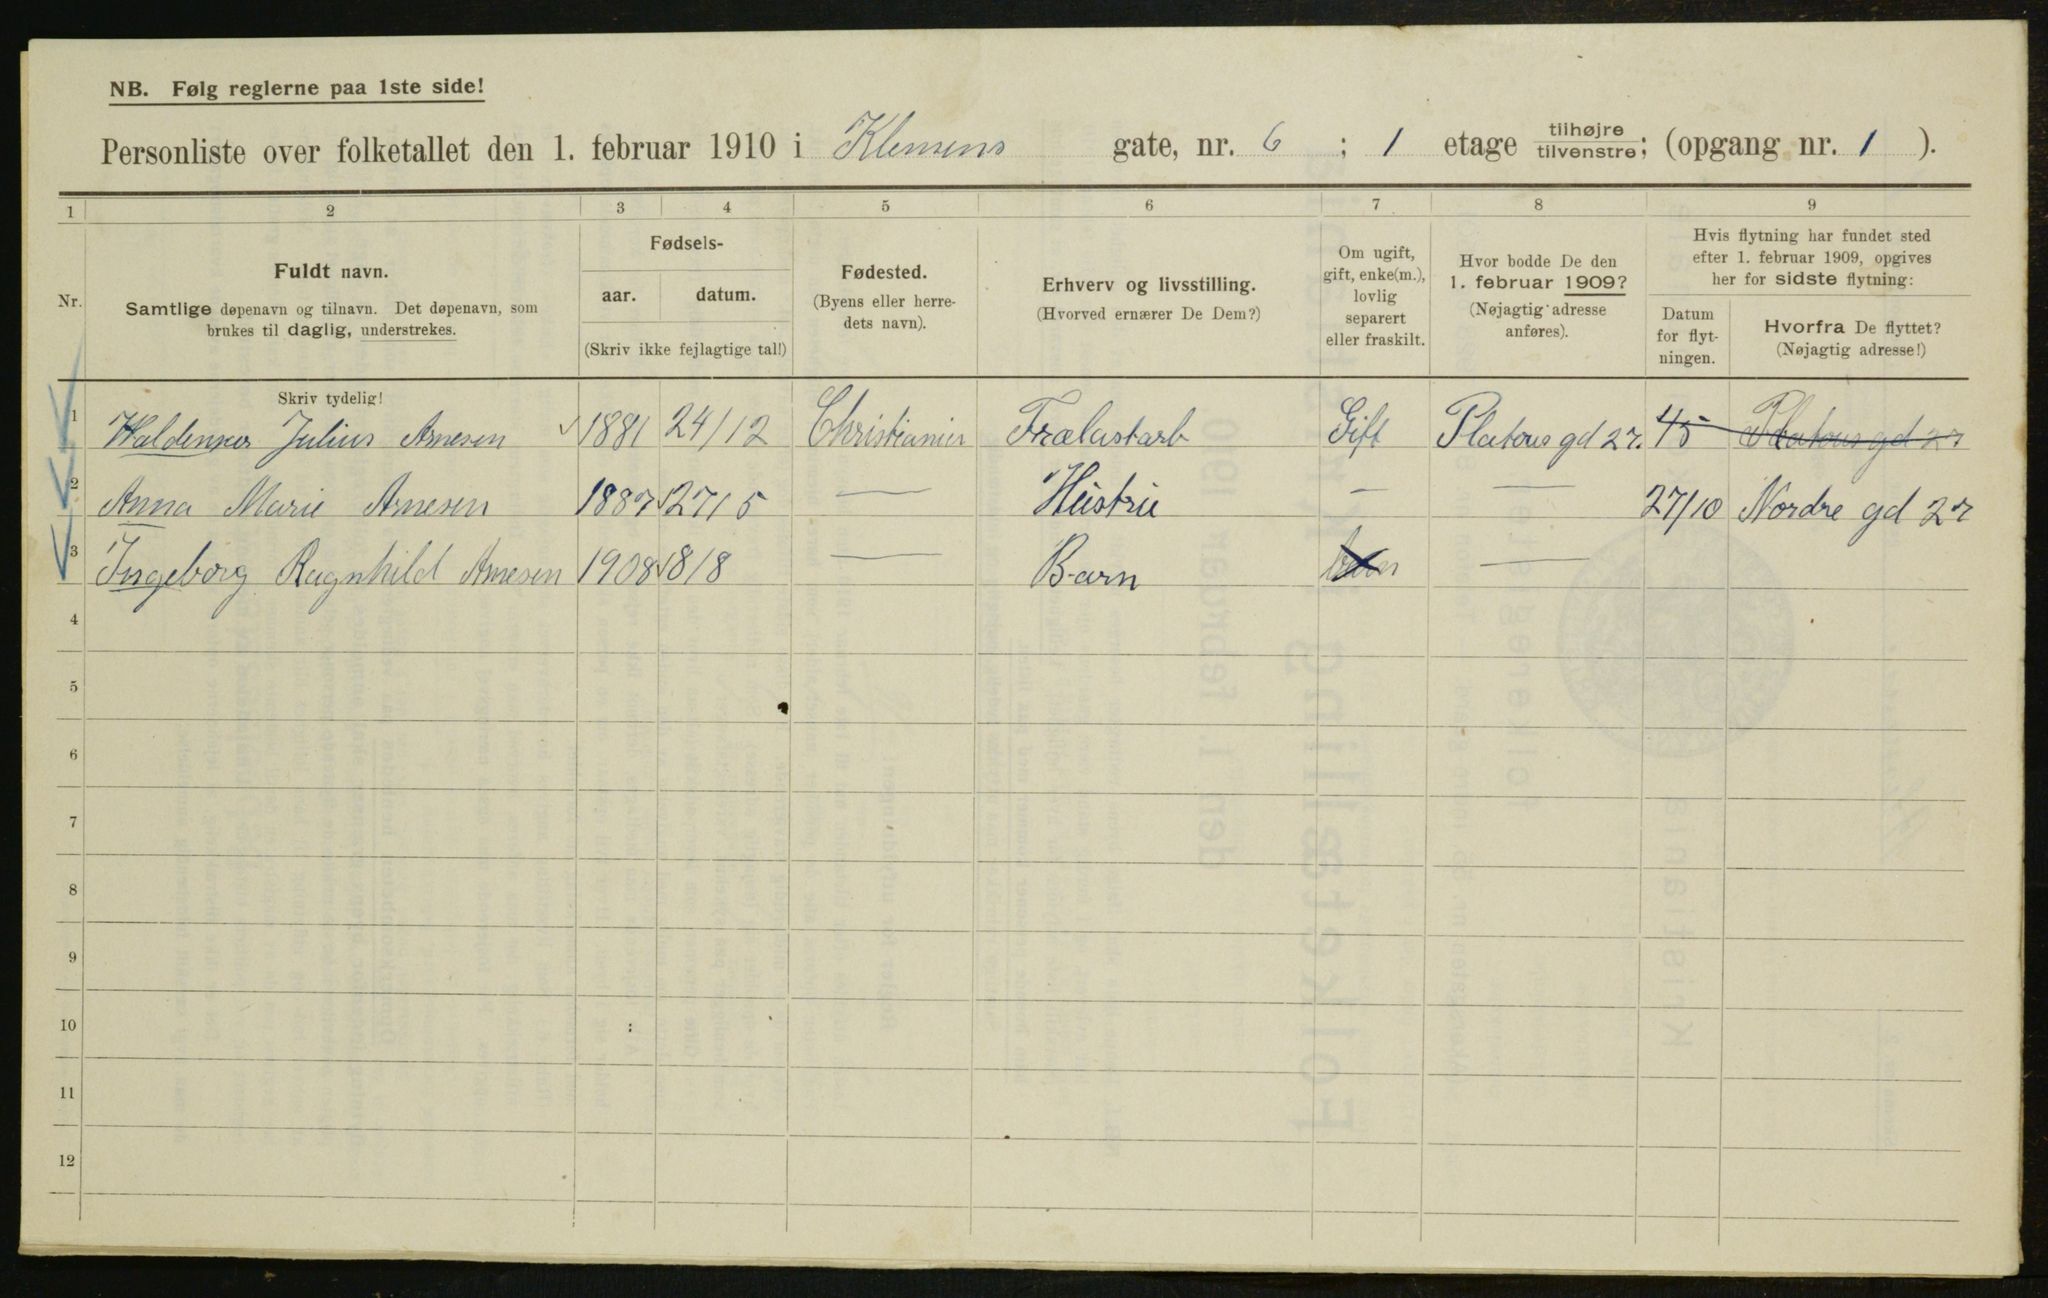 NB. Følg reglerne paa 1ste side!
Personliste over folketallet den 1. februar 1910 i Klemens gate, nr. 6 ; 1 etage tilhøjre tilvenstre; (opgang nr. 1 ).
1 2 3 4 5 6 7 8 9
Nr.
Fuldt navn.
Samtlige døpenavn og tilnavn. Det døpenavn, som
brukes til daglig, understrekes.
Fødsels-
aar. datum.
(Skriv ikke fejlagtige tal!)
Fødested.
(Byens eller herre-
dets navn).
Erhverv og livsstilling.
(Hvorved ernærer De Dem?)
Om ugift,
gift, enke(m.),
lovlig
separert
eller fraskilt.
Hvor bodde De den
1. februar 1909?
(Nøjagtig adresse
anføres).
Hvis flytning har fundet sted
efter 1. februar 1909, opgives
her for sidste flytning:
Datum
for flyt-
ningen.
Hvorfra De flyttet?
(Nøjagtig adresse!)
Skriv tydelig!
1 Waldemar Julius Arnesen 1881 24/12 Christiania Frælastarb Gift Platous gd 27. 45 Platous gd 27
2 Anna Marie Arnesen 1887 27/5 — Hustru — — 27/10 Nordre gd 27
3 Ingeborg Ragnhild Arnesen 1908 18/8 — Barn barn —
4
5
6
7
8
9
10
11
12